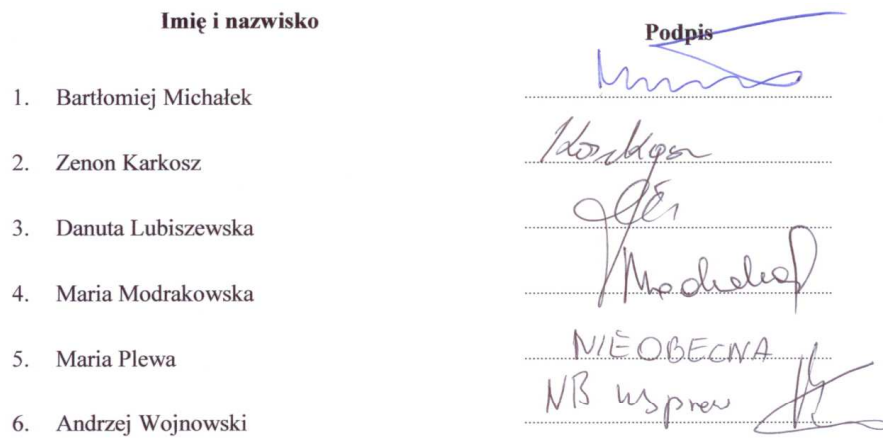 Imię i nazwisko Podpis
1. Bartłomiej Michałek
2. Zenon Karkosz Karkosz
3. Danuta Lubiszewska
4. Maria Modrakowska
5. Maria Plewa NIEOBECNA
6. Andrzej Wojnowski NB